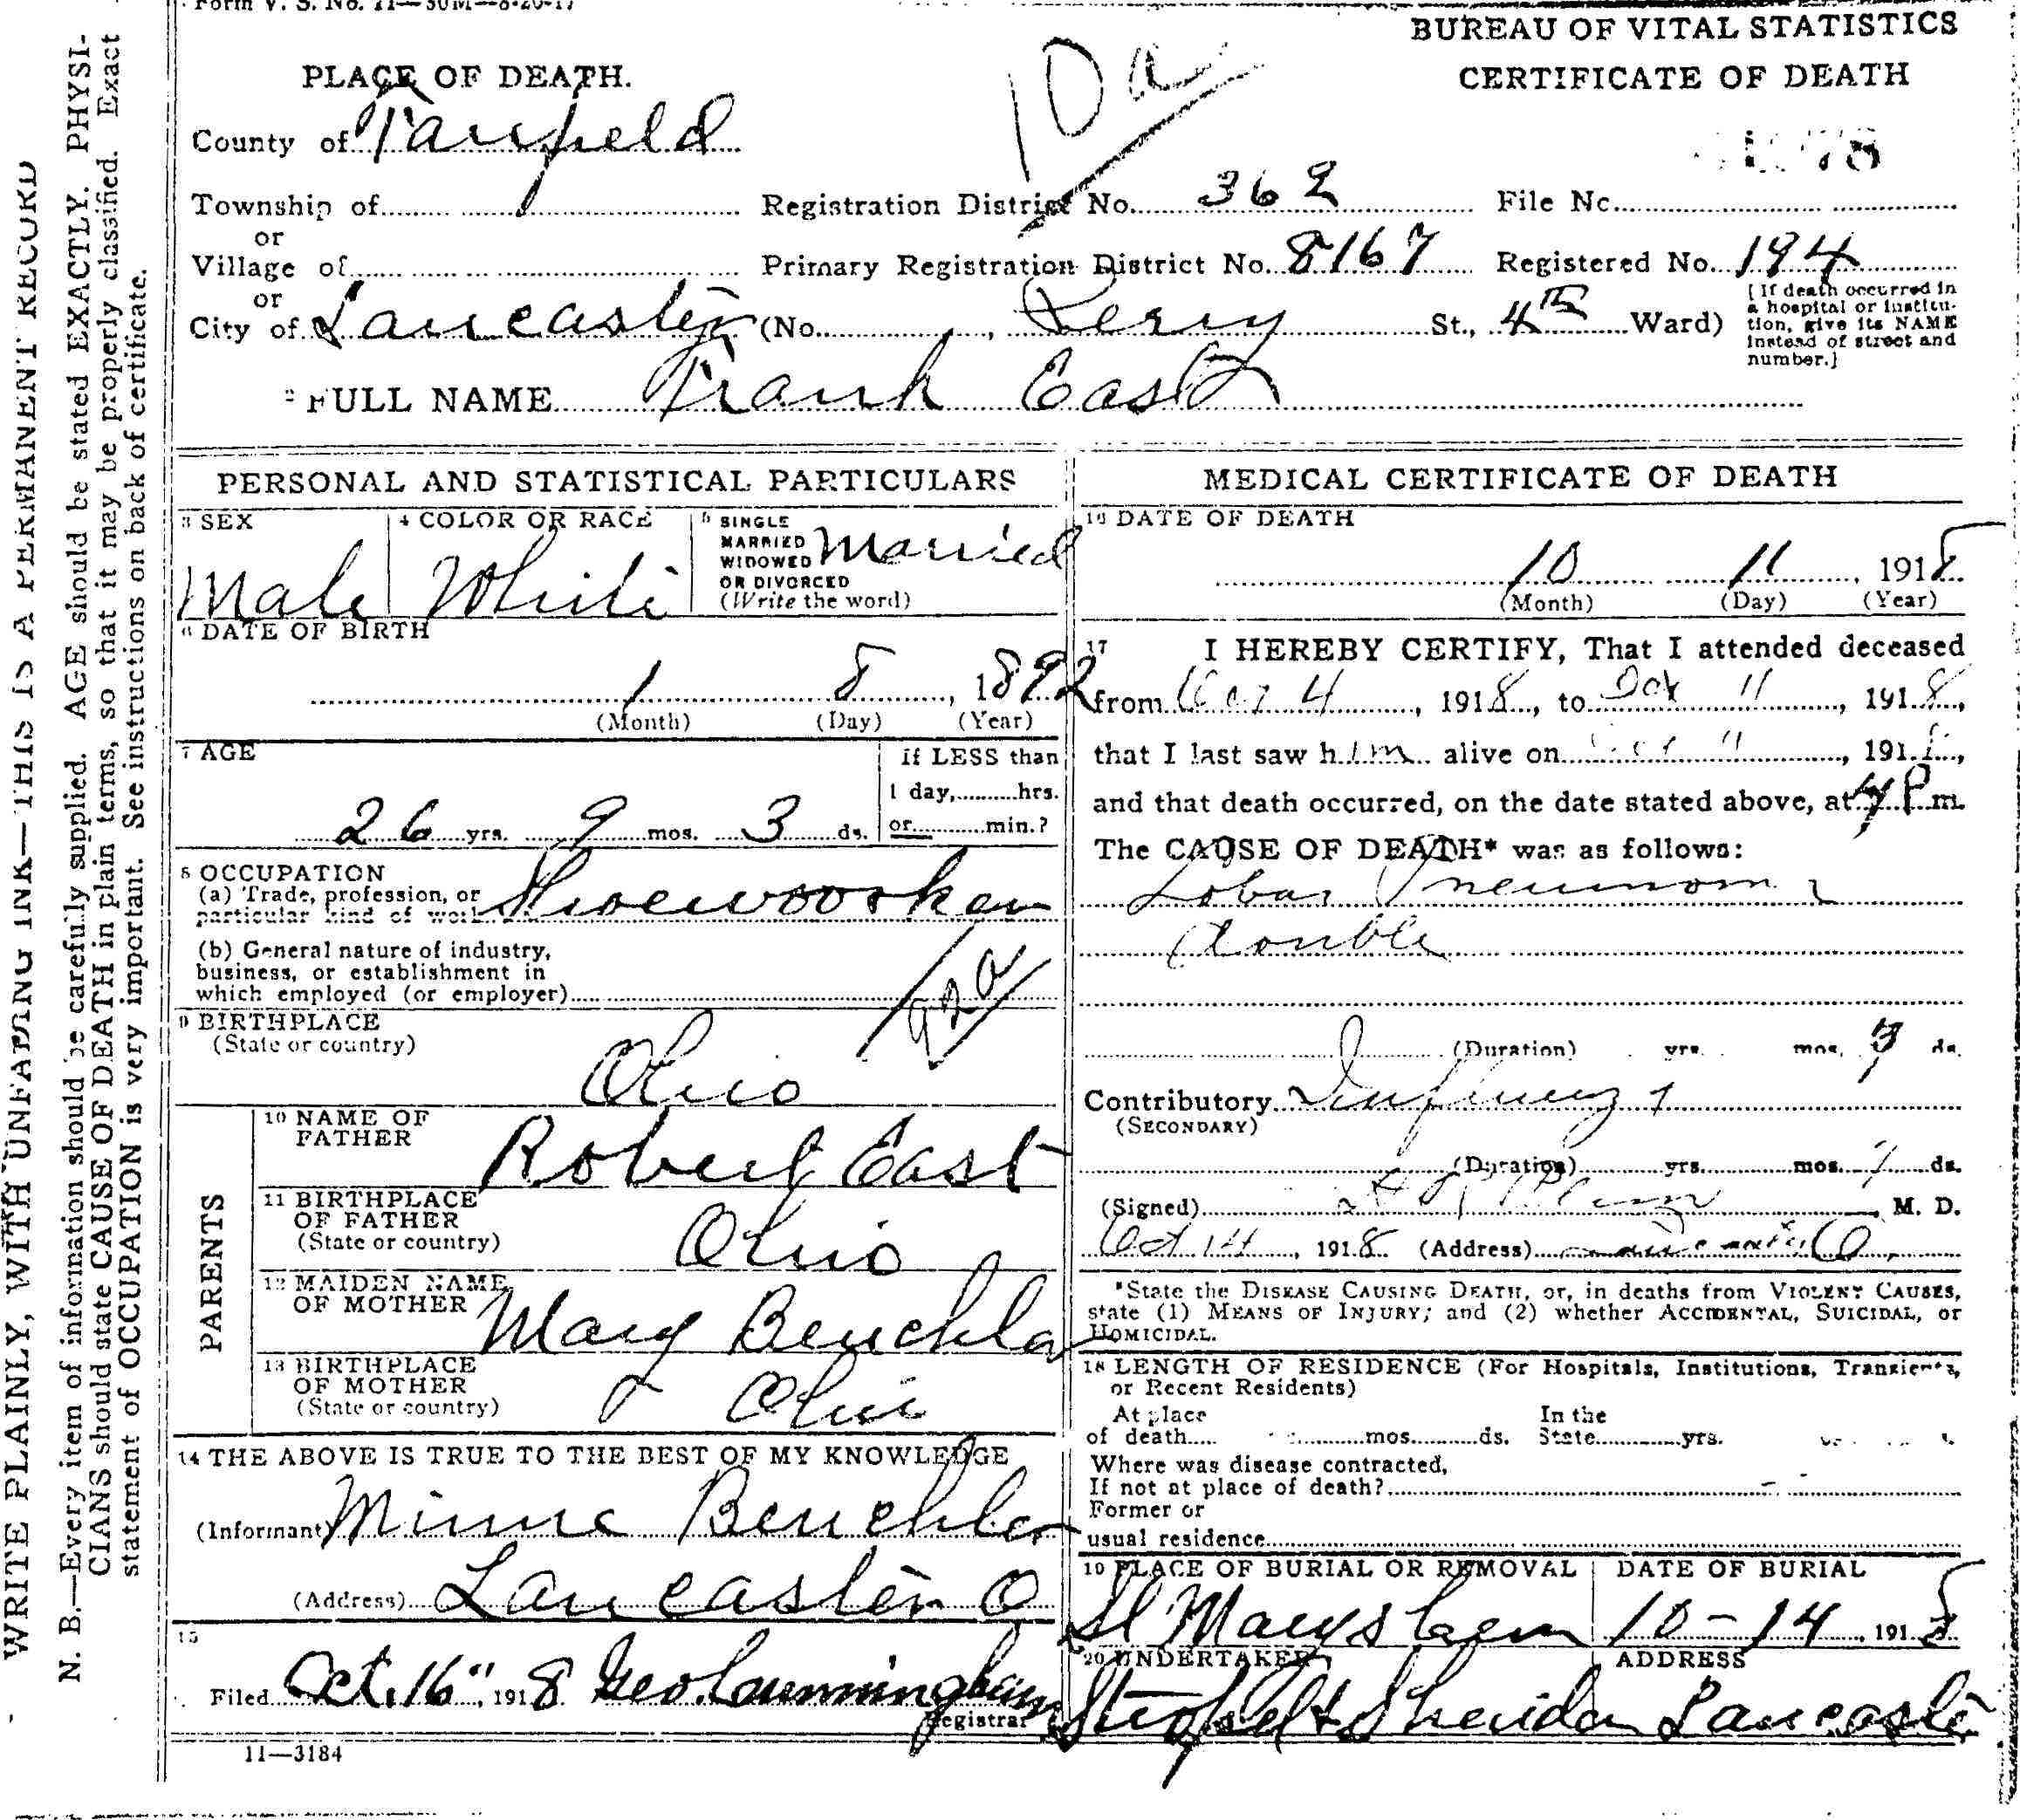 Form V. S. No. 11—50M—8-20-17
BUREAU OF VITAL STATISTICS
CERTIFICATE OF DEATH
10 a
PLACE OF DEATH.
County of Fairfield
Township of Registration District No. 362 File No.
or
Village of Primary Registration District No. 8167 Registered No. 194
or
City of Lancaster (No. , Perry St., 4th Ward)
[If death occurred in
a hospital or institu-
tion, give its NAME
instead of street and
number.]
2 FULL NAME Frank East
PERSONAL AND STATISTICAL PARTICULARS
3 SEX
Male
4 COLOR OR RACE
White
5 SINGLE
MARRIED
WIDOWED
OR DIVORCED
(Write the word)
Married
6 DATE OF BIRTH
1 8, 1892
(Month) (Day) (Year)
7 AGE
26 yrs. 9 mos. 3 ds.
if LESS than
1 day, hrs.
or min.?
8 OCCUPATION
(a) Trade, profession, or
particular kind of work Shoewoorker
(b) General nature of industry,
business, or establishment in
which employed (or employer)
92a
9 BIRTHPLACE
(State or country)
Ohio
PARENTS
10 NAME OF
FATHER
Robert East
11 BIRTHPLACE
OF FATHER
(State or country)
Ohio
12 MAIDEN NAME
OF MOTHER
Mary Beuchler
13 BIRTHPLACE
OF MOTHER
(State or country)
Ohio
14 THE ABOVE IS TRUE TO THE BEST OF MY KNOWLEDGE
(Informant) Minne Beuchler
(Address) Lancaster O
15
Filed Oct. 16", 1918 Geo. Cunningham
Registrar
11—3184
MEDICAL CERTIFICATE OF DEATH
16 DATE OF DEATH
10 11, 1918
(Month) (Day) (Year)
17 I HEREBY CERTIFY, That I attended deceased
from Oct 4, 1918, to Oct 11, 1918,
that I last saw him alive on Oct 11, 1918,
and that death occurred, on the date stated above, at P m.
The CAUSE OF DEATH* was as follows:
Lobar Pneumonia
double
(Duration) yrs. mos. ds.
Contributory Influenza
(SECONDARY)
(Duration) yrs. mos. 7 ds.
(Signed) M. D.
Oct 14, 1918 (Address) Lancaster, O.
*State the DISEASE CAUSING DEATH, or, in deaths from VIOLENT CAUSES,
state (1) MEANS OF INJURY; and (2) whether ACCIDENTAL, SUICIDAL, or
HOMICIDAL.
18 LENGTH OF RESIDENCE (For Hospitals, Institutions, Transients,
or Recent Residents)
At place In the
of death mos. ds. State yrs.
Where was disease contracted,
If not at place of death?
Former or
usual residence
19 PLACE OF BURIAL OR REMOVAL
St Marys Cem
DATE OF BURIAL
10-14, 1918
20 UNDERTAKER
Stropel & Sheridan
ADDRESS
Lancaster
WRITE PLAINLY, WITH UNFADING INK—THIS IS A PERMANENT RECORD
N. B.—Every item of information should be carefully supplied. AGE should be stated EXACTLY. PHYSI-
CIANS should state CAUSE OF DEATH in plain terms, so that it may be properly classified. Exact
statement of OCCUPATION is very important. See instructions on back of certificate.